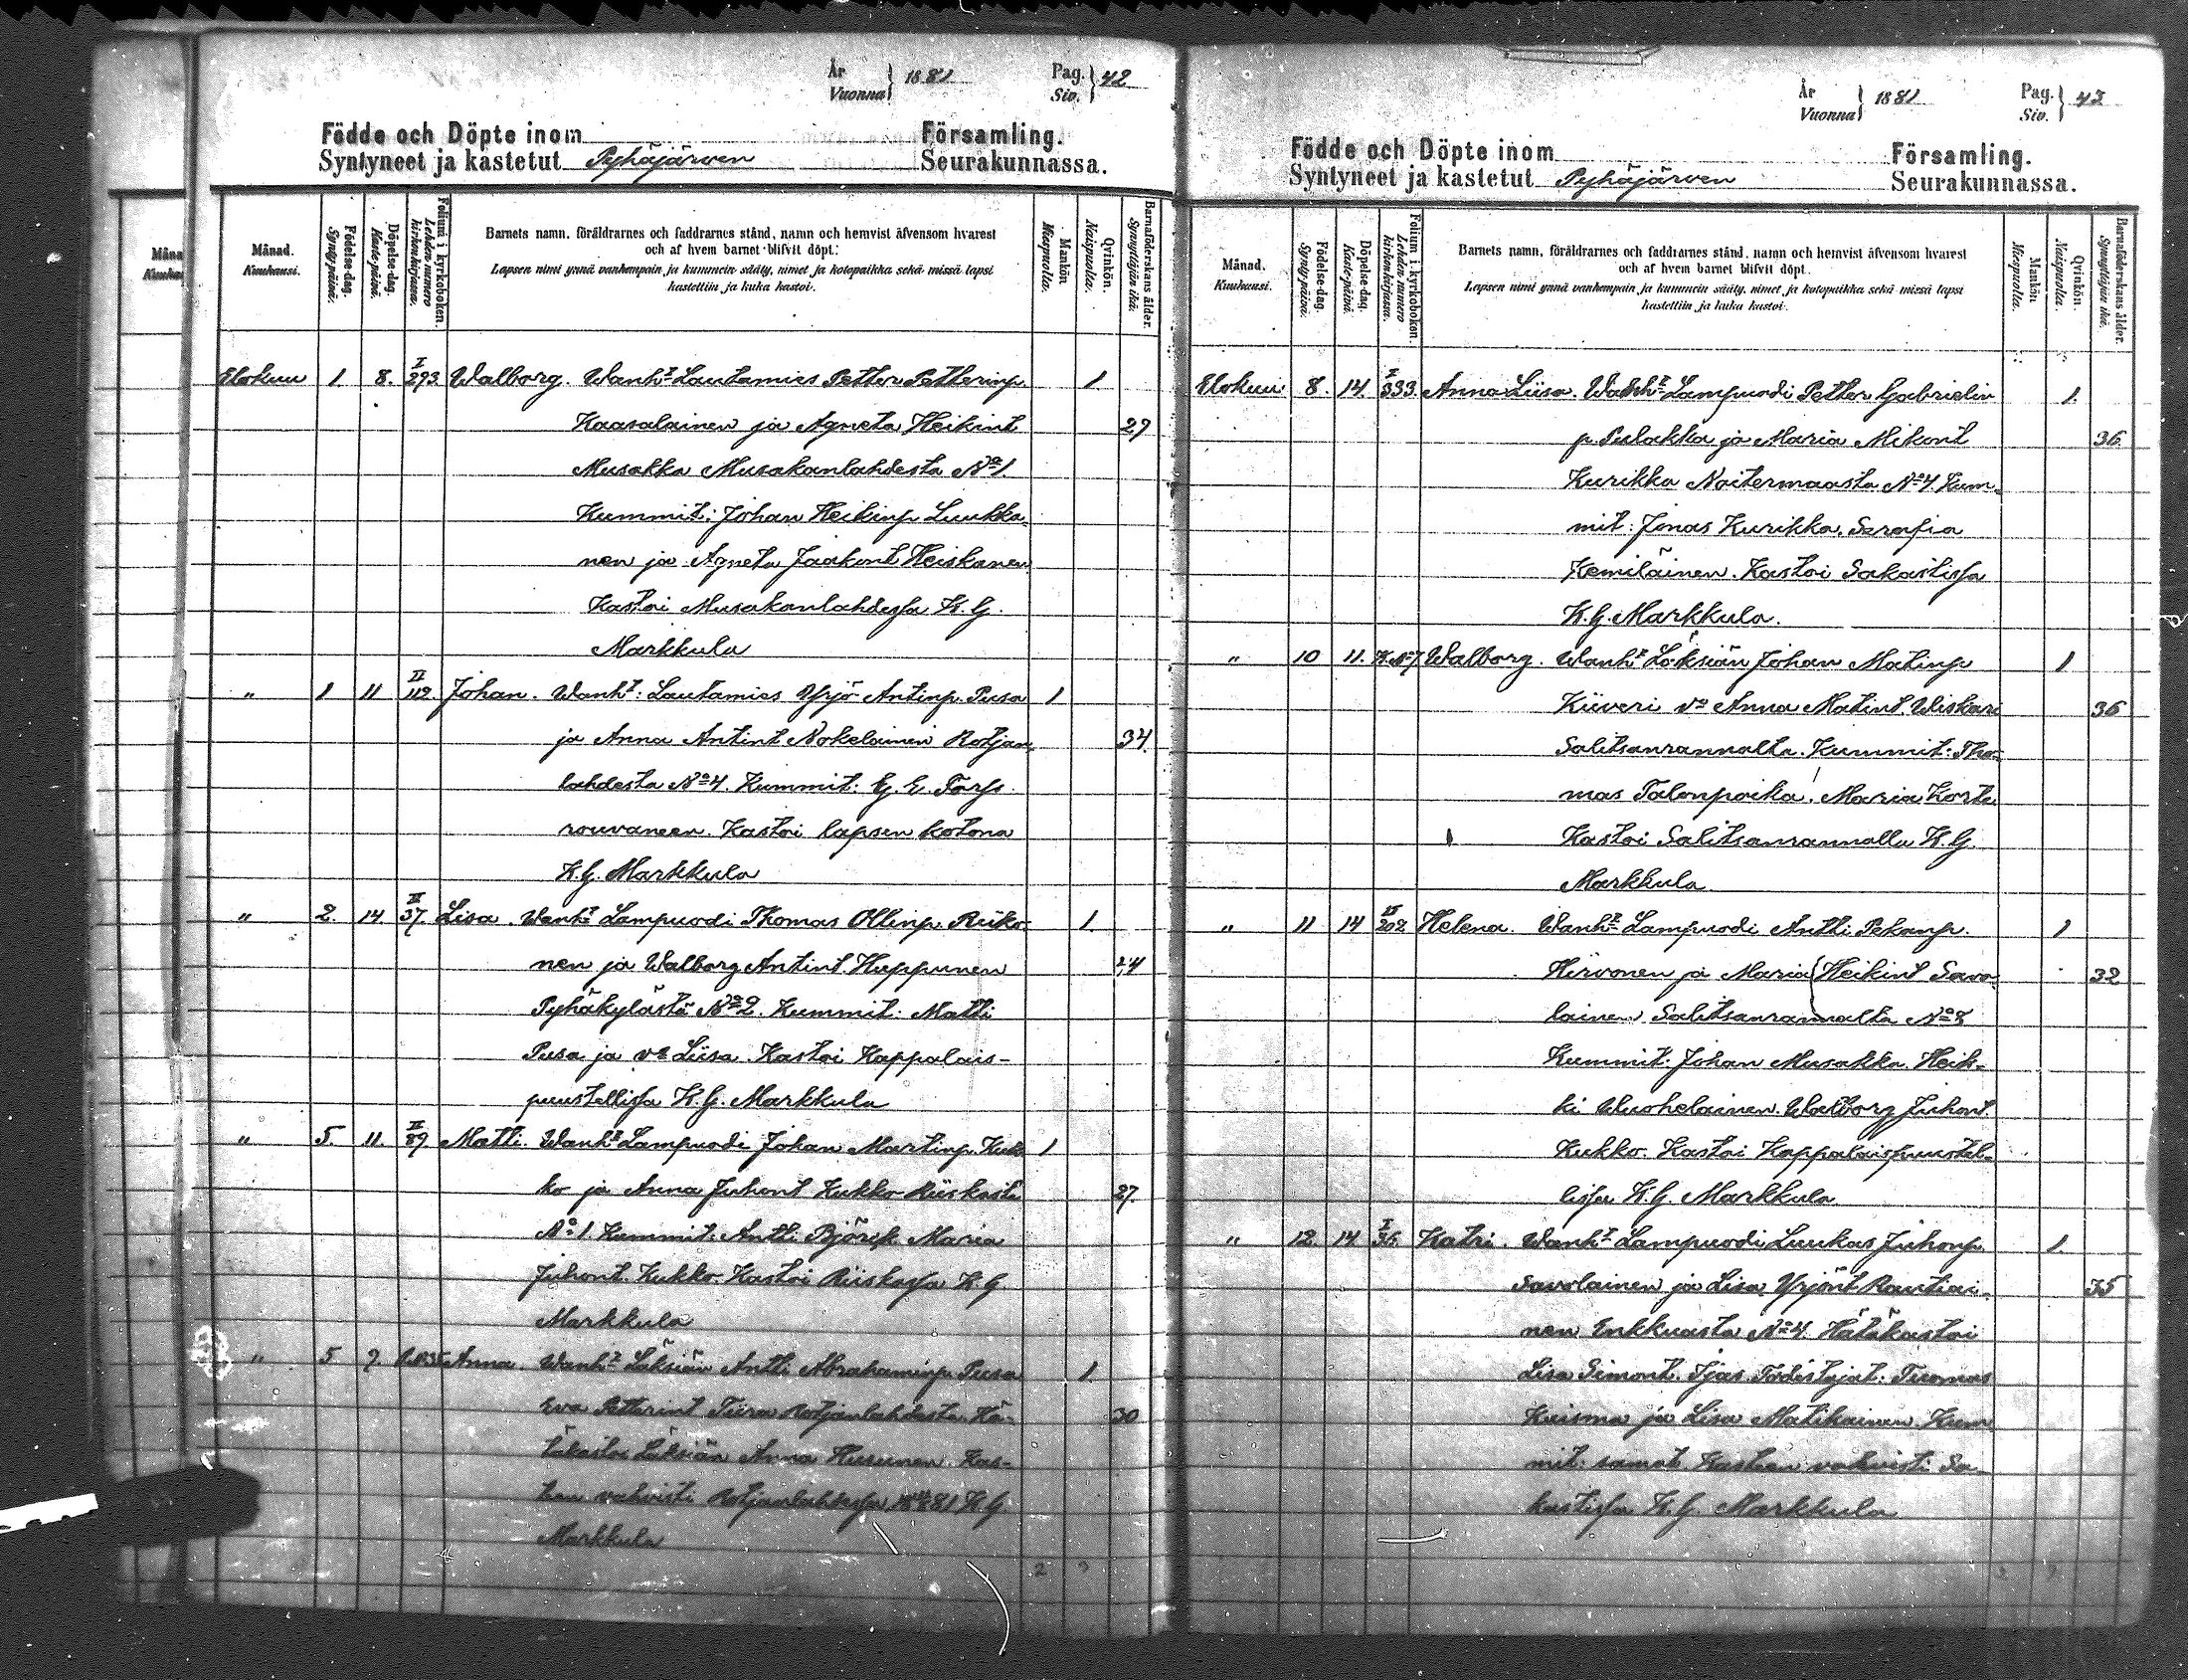 År
Vuonna 1881 Pag. Siv. 42
Födde och Döpte inom Församling.
Syntyneet ja kastetut Pyhäjärven Seurakunnassa.
Månad. Kuukausi.
Födelse-dag. Syntymä-päivä.
Döpelse-dag. Kaste-päivä.
Folium i kyrkoboken. Lehden numero kirkonkirjassa.
Barnets namn, föräldrarnes och faddrarnes stånd, namn och hemvist äfvensom hvarest
och af hvem barnet blifvit döpt.
Lapsen nimi ynnä vanhempain ja kummein sääty, nimet ja kotopaikka sekä missä lapsi
kastettiin ja kuka kastoi.
Mankön Miespuolia.
Qvinkön. Naispuolia.
Barnaföderskans ålder. Synnyttäjän ikä.
Elokuu 1 8. I 293 Walborg. Wanht Lautamies Petter Petterinp. 1
Kaasalainen ja Agneta Heikint 29
Musakka Musakanlahdesta No 1.
Kummit: Johan Heikinp. Luukka-
nen ja Agneta Jaakont Heiskanen
Kastoi Musakanlahdessa K. G.
Markkula
" 1 11 II 112. Johan. Wanht: Lautamies Yrjö Antinp. Pusa 1
ja Anna Antint Nokelainen Rotjan- 34.
lahdesta No 4. Kummit: G. E. Forss
rouvaneen. Kastoi lapsen kotona
K. G. Markkula
" 2. 14 37. Lisa. Wanht Lampuodi Thomas Ollinp. Riiko- 1.
nen ja Walborg Antint. Huppunen 24
Pyhäkylästä No 2. Kummit: Matti
Pusa ja vo Liisa. Kastoi Kappalais-
puustellissa K. G. Markkula
" 5. 11. II 89 Matti. Wanht Lampuodi Johan Martinp. Kuk- 1
ko ja Anna Juhont Kukko Riiskasta 27.
No 1. Kummit: Antti Björck. Maria
Juhont. Kukko. Kastoi Riiskassa K. G
Markkula
" 5 9. Anna. Wanht Läksiän Antti Abrahaminp. Pusa 1.
Eva Petterint Tiira Rotjanlahdesta. Hä- 30
täkastoi Läksiän Anna Husunen. Kas-
teen vahvisti Rotjanlahdessa K. G.
Markkula
2 3
År
Vuonna 1881 Pag. Siv. 43
Födde och Döpte inom Församling.
Syntyneet ja kastetut Pyhäjärven Seurakunnassa.
Månad. Kuukausi.
Födelse-dag. Syntymä-päivä.
Döpelse-dag. Kaste-päivä.
Folium i kyrkoboken. Lehden numero kirkonkirjassa.
Barnets namn, föräldrarnes och faddrarnes stånd, namn och hemvist äfvensom hvarest
och af hvem barnet blifvit döpt.
Lapsen nimi ynnä vanhempain ja kummein sääty, nimet ja kotopaikka sekä missä lapsi
kastettiin ja kuka kastoi.
Mankön Miespuolia.
Qvinkön. Naispuolia.
Barnaföderskans ålder. Synnyttäjän ikä.
Elokuu 8. 14. I 333. Anna Liisa. Wanht Lampuodi Petter Gabrielin 1.
p. Pulakka ja Maria Mikont 36.
Kurikka Noitermaasta No 4. Kum-
mit: Jonas Kurikka. Serafia
Kemiläinen. Kastoi Sakastissa
K. G. Markkula.
" 10 11. Walborg. Wanht Läksiän Johan Matinp 1
Kiiveri vo Anna Matint. Wiskari 36
Salitsanrannalta. Kummit: Tho-
mas Talonpoika. Maria Korte
Kastoi Salitsanrannalla K. G.
Markkula
" 11 14 II 202. Helena. Wanht Lampuodi Antti Pekanp. 1
Hirvonen ja Maria Heikint Savo- 32
lainen. Salitsanrannalta No 8
Kummit: Johan Musakka. Heik-
ki Wuohelainen. Walborg Juhont.
Kukko. Kastoi Kappalaispuustel-
lissa K. G. Markkula
" 12. 14 I 36. Katri. Wanht Lampuodi Luukas Juhonp. 1.
Savolainen ja Lisa Yrjönt Rautiai- 35
nen Enkkuasta No 4. Hätäkastoi
Lisa Simont. Ijas Todistajat: Tuomas
Kuisma ja Lisa Matikainen. Kum
mit: samat. Kasteen vahvisti Sa-
kastissa K. G. Markkula